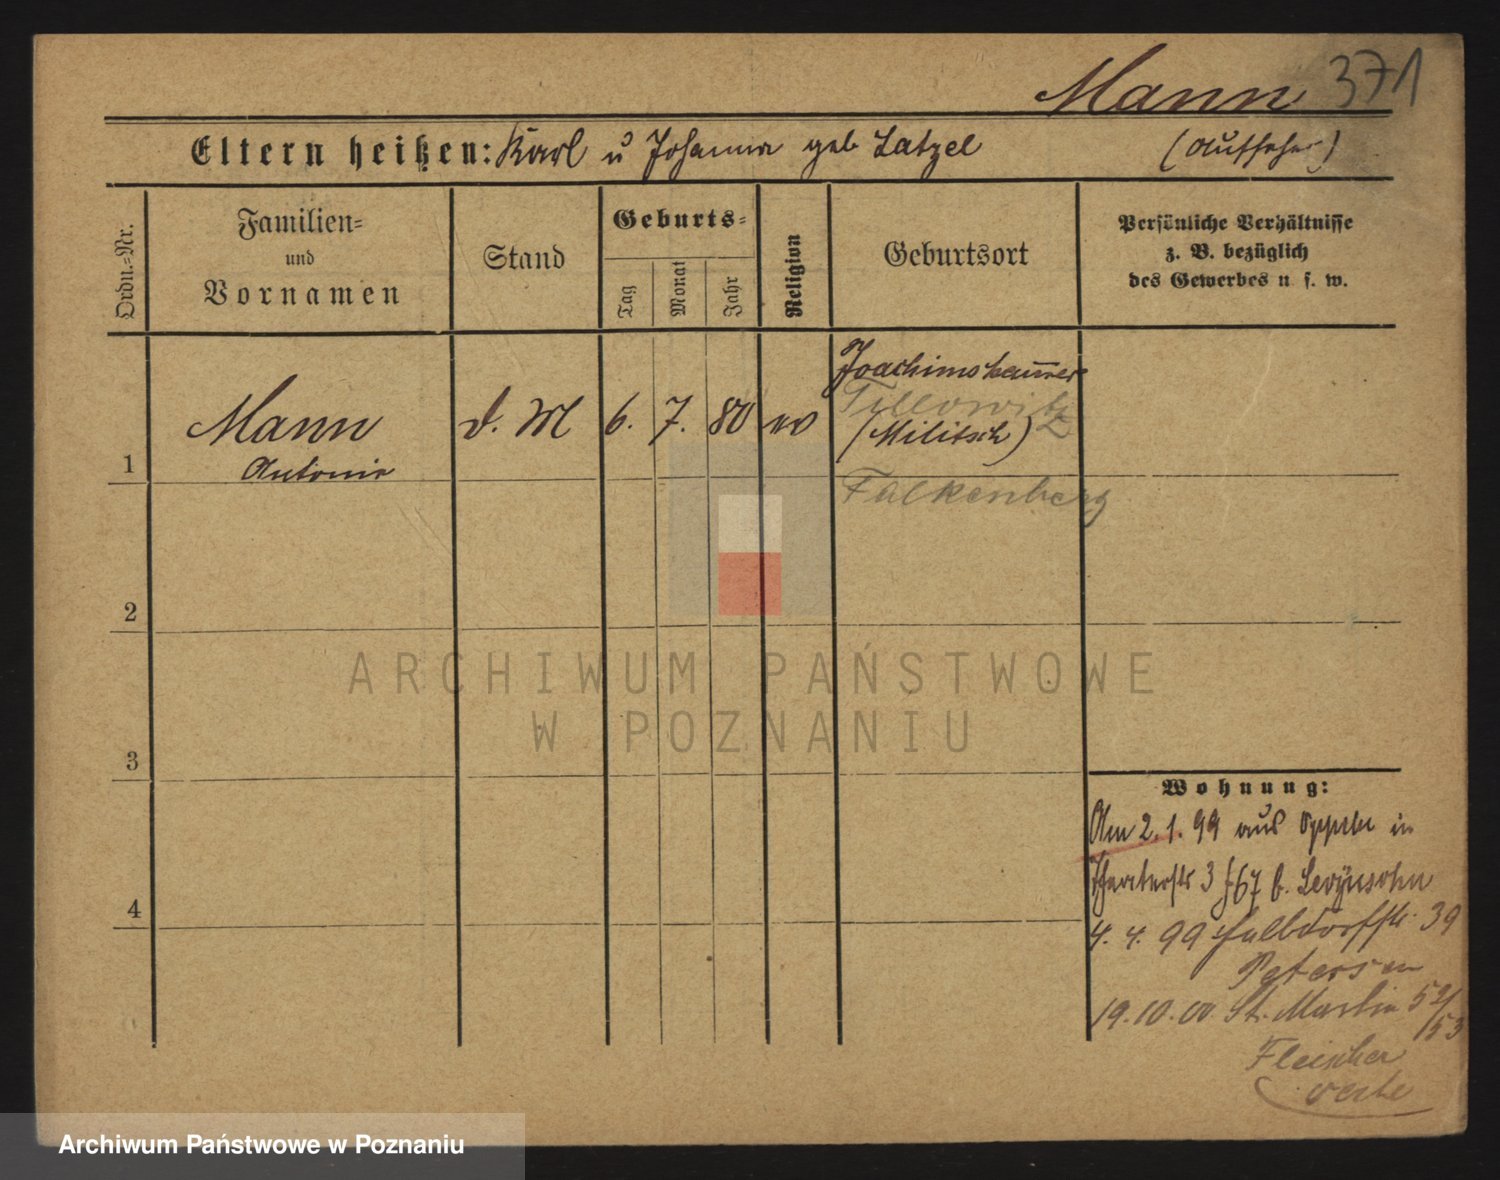 Mann 371
Eltern heißen: Karl u Johanna geb Latzel (Aufseher)
Ordn.-Nr.
Familien-
und
Vornamen
Stand
Geburts-
Tag
Monat
Jahr
Religion
Geburtsort
Persönliche Verhältnisse
z. B. bezüglich
des Gewerbes u. s. w.
Joachimshammer
Tillowitz
Mann d. M 6. 7. 80 (Militsch)
1 Antonie
Falkenberg
2
3
4
Wohnung:
Am 2. 1. 99 aus Oppeln in
Theaterstr 3 b. Levysohn
4. 4. 99 39
Petersen
19. 10. 00. St. Martin 52/
53
Fleischer
ARCHIWUM PAŃSTWOWE
W POZNANIU
Archiwum Państwowe w Poznaniu